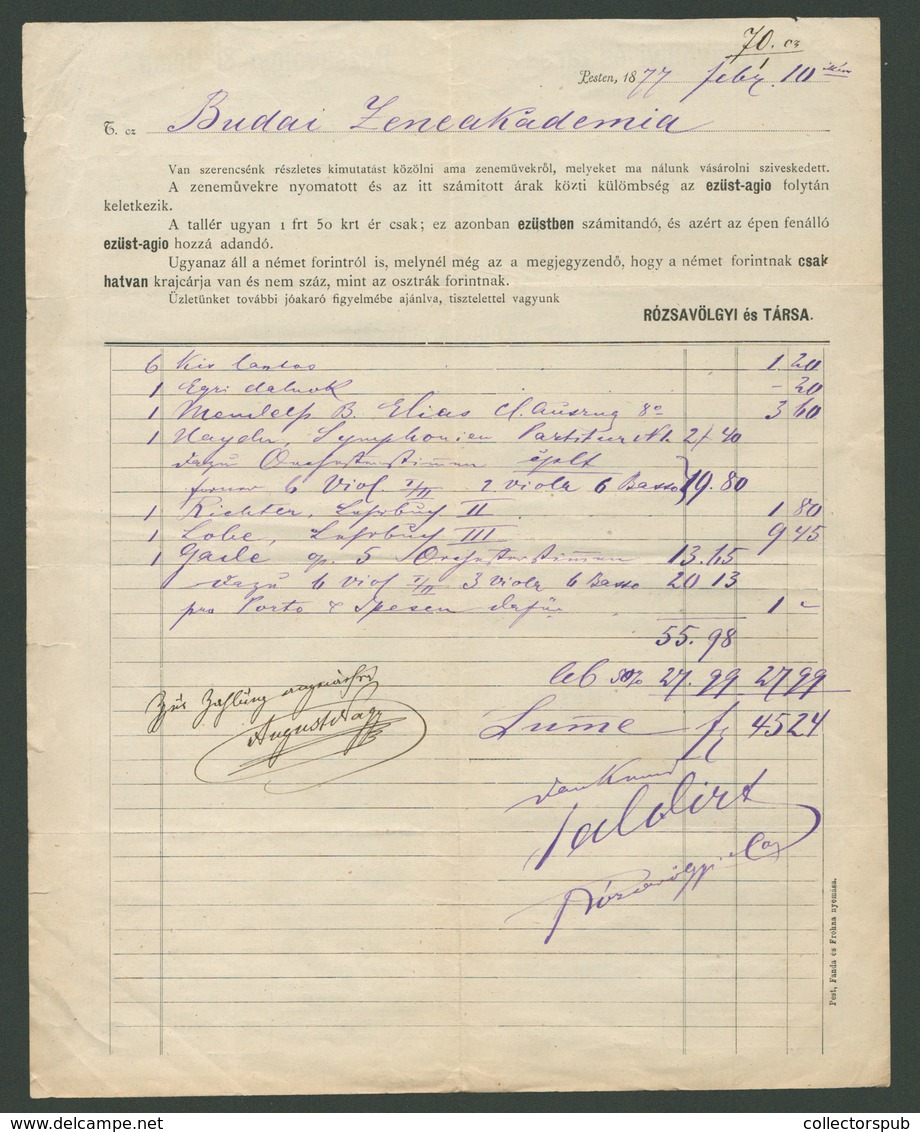 70. cz
Pesten, 1877 febr. 10
T. cz Budai Zeneakademia
Van szerencsénk részletes kimutatást közölni ama zeneművekről, melyeket ma nálunk vásárolni sziveskedett.
A zeneművekre nyomatott és az itt számitott árak közti külömbség az ezüst-agio folytán
keletkezik.
A tallér ugyan 1 frt 50 krt ér csak; ez azonban ezüstben számitandó, és azért az épen fenálló
ezüst-agio hozzá adandó.
Ugyanaz áll a német forintról is, melynél még az a megjegyzendő, hogy a német forintnak csak
hatvan krajcárja van és nem száz, mint az osztrák forintnak.
Üzletünket további jóakaró figyelmébe ajánlva, tisztelettel vagyunk
RÓZSAVÖLGYI és TÁRSA.
6 Kis lantos 1.20
1 Egri dalnok – 20
1 Mendelss B. Elias Cl. Auszug 8º 3 60
1 Haydn, Symphonien Partitur No. 2/ 40
dazu Orchesterstimmen cplt
ferner 6 Viol. I/II 2 Viola 6 Basso 19.80
1 Richter, Lehrbuch II 1 80
1 Lobe, Lehrbuch III 9 45
1 Gade op. 5 Orchesterstimmen 13.65
dazu 6 Viol I/II 3 Viola 6 Basso 20 13
pro Porto & Spesen dafür 1 –
55.98
ab 50% 27.99 27 99
Sume f 45 24
Zur Zahlung angewiesen
August Nagy
dankend
saldirt
Rózsavölgyi & Co
Pest, Fanda és Frohna nyomása.
collectorspub